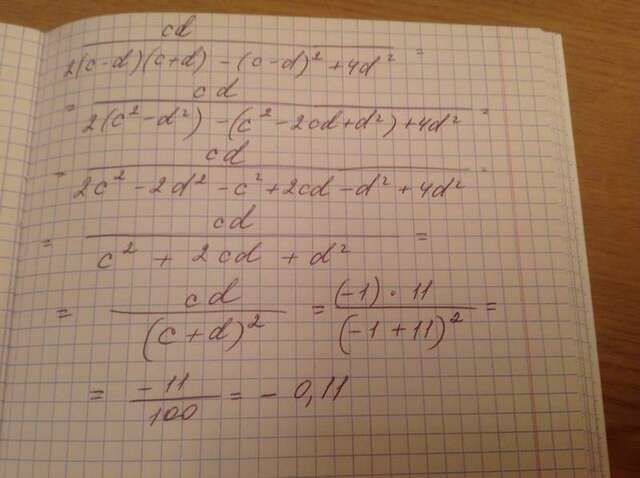 cd / 2(c-d)(c+d) - (c-d)² + 4d² =
= cd / 2(c²-d²) - (c²-2cd+d²) + 4d² =
= cd / 2c² - 2d² - c² + 2cd - d² + 4d² =
= cd / c² + 2cd + d² =
= cd / (c+d)² = (-1)·11 / (-1+11)² =
= -11 / 100 = - 0,11